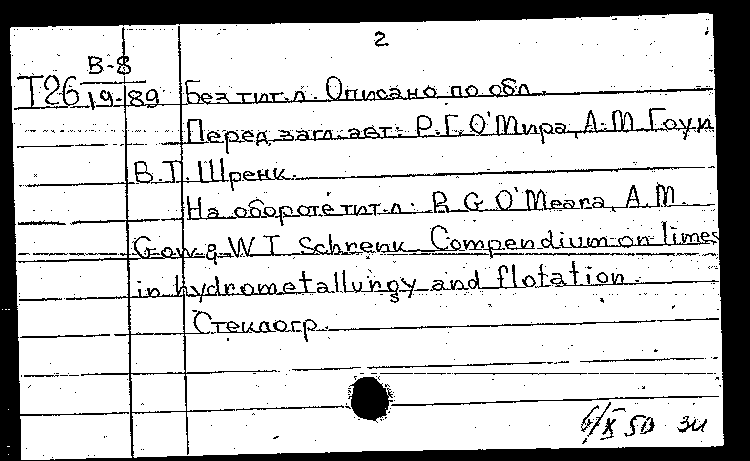 2
В-8
Т26 19-89 Без тит. л. Описано по обл.
Перед загл. авт: Р.Г. О'Мира, А.М. Гоуи
В.Т. Шренк.
На обороте тит. л: R G O'Meara, A.M.
Gow & W T Schrenk Compendium on limes
in hydrometallurgy and flotation.
Стеклогр.
6/X 50 зи